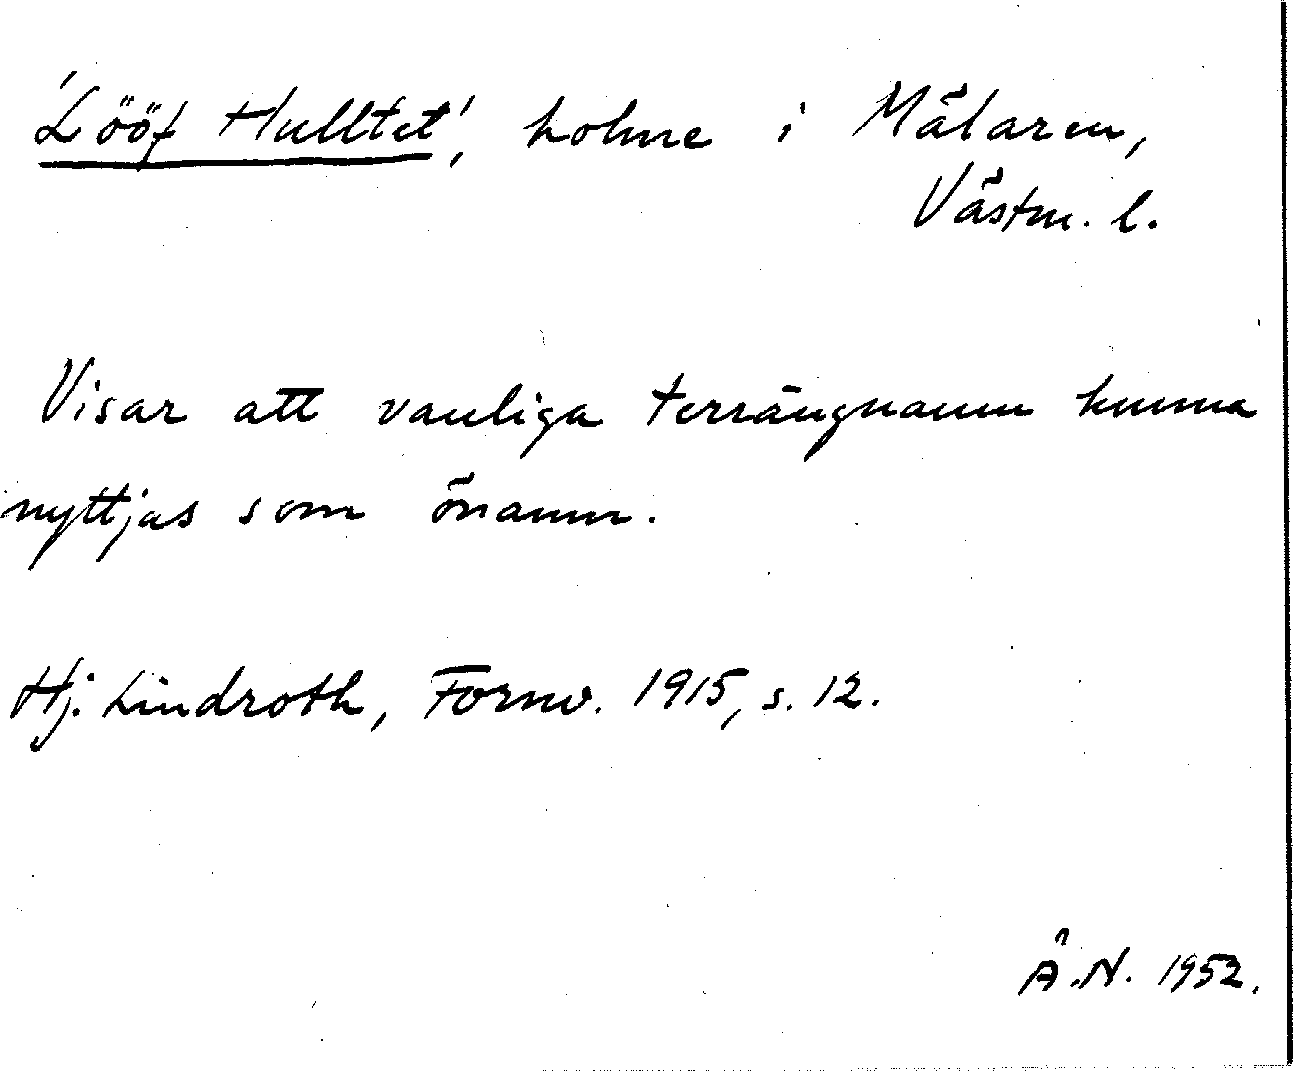 'Lööf Hulltet', holme i Mälaren,
Västm. l.
Visar att vanliga terrängnamn kunna
nyttjas som önamn.
Hj. Lindroth, Fornv. 1915, s. 12.
Å.N. 1952.